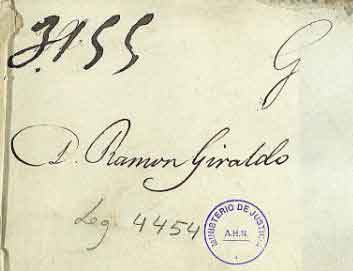 3155
G
D. Ramon Giraldo
Leg 4454
MINISTERIO DE JUSTICIA
A.H.N.